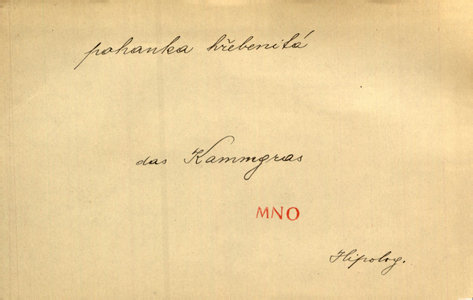 pohanka hřebenitá
das Kammgras
MNO
Hipolog.